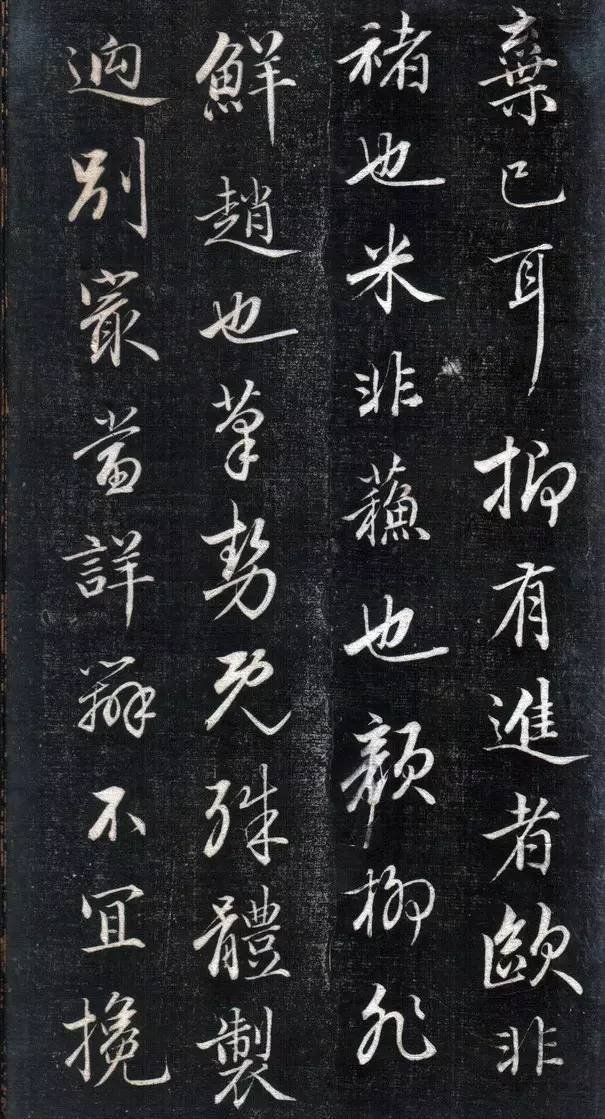 棄已耳抑有進者歐非
褚也米非蘓也顏柳非
鮮趙也筆勢既殊體製
逈別冣當詳辨不宜攙